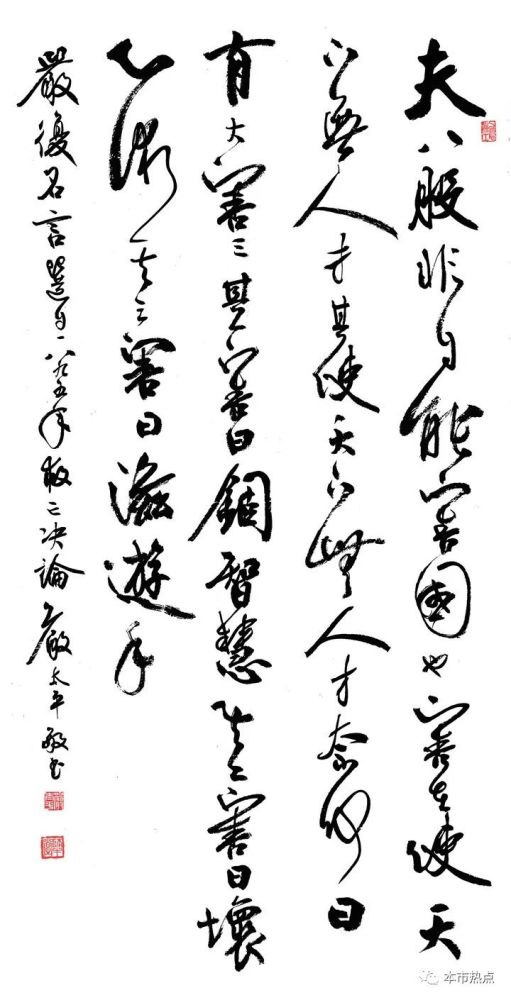 夫八股非自能害國也害在使天
下無人才其使天下無人才奈何曰
有大害三其一害曰錮智慧其二害曰壞
心術其三害曰滋遊手
嚴復名言選自一八九五年救亡决論嚴太平敬书
本市热点